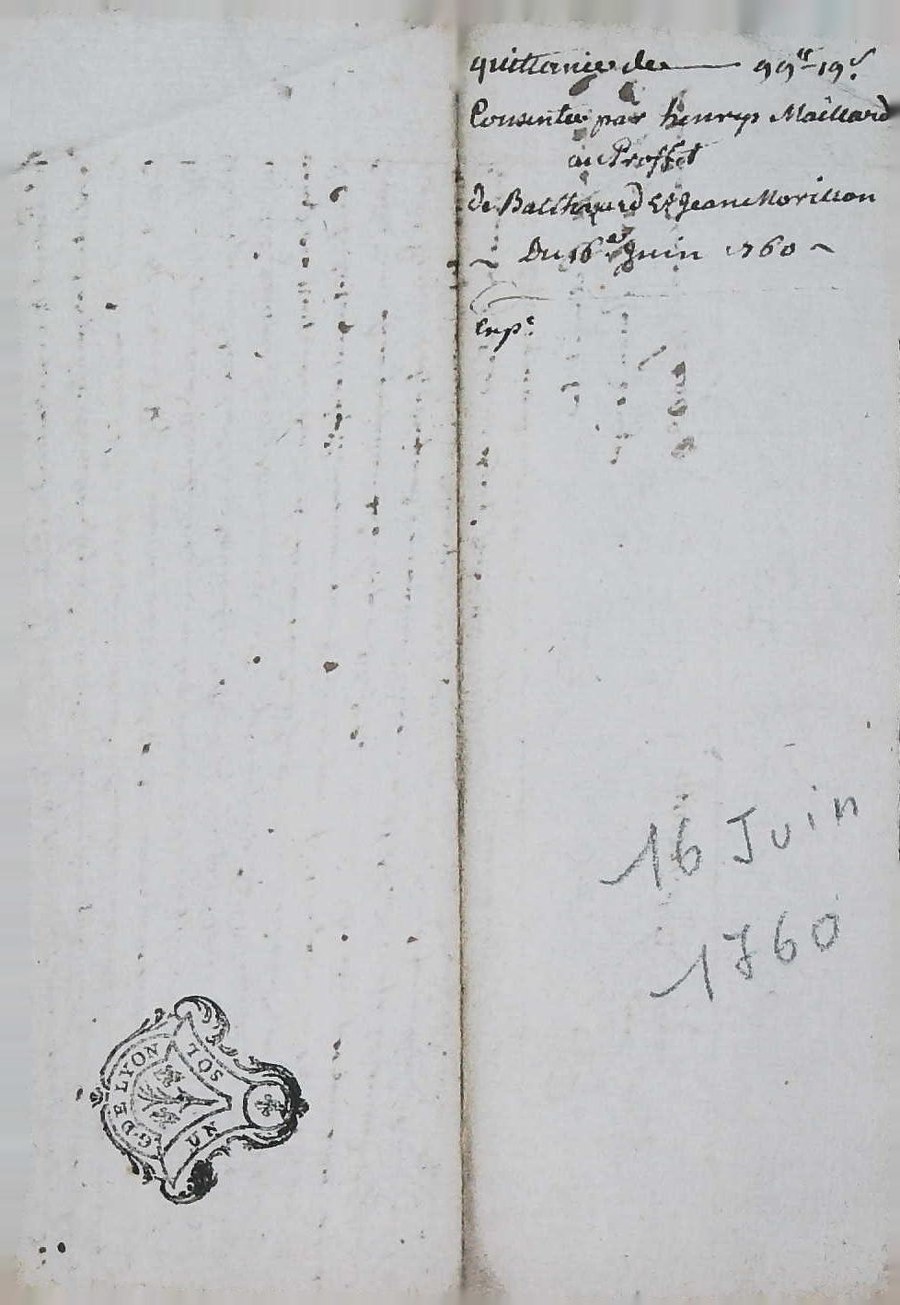 quittance de — 99ᵗᵗ-19ˢ
Consentie par henrys Maillard
au Proffet
de Balthazard Et Jean Morillon
Du 16ᵉ Juin 1760
Exp.ᵉ
16 Juin
1760
G. DE LYON
UN SOL